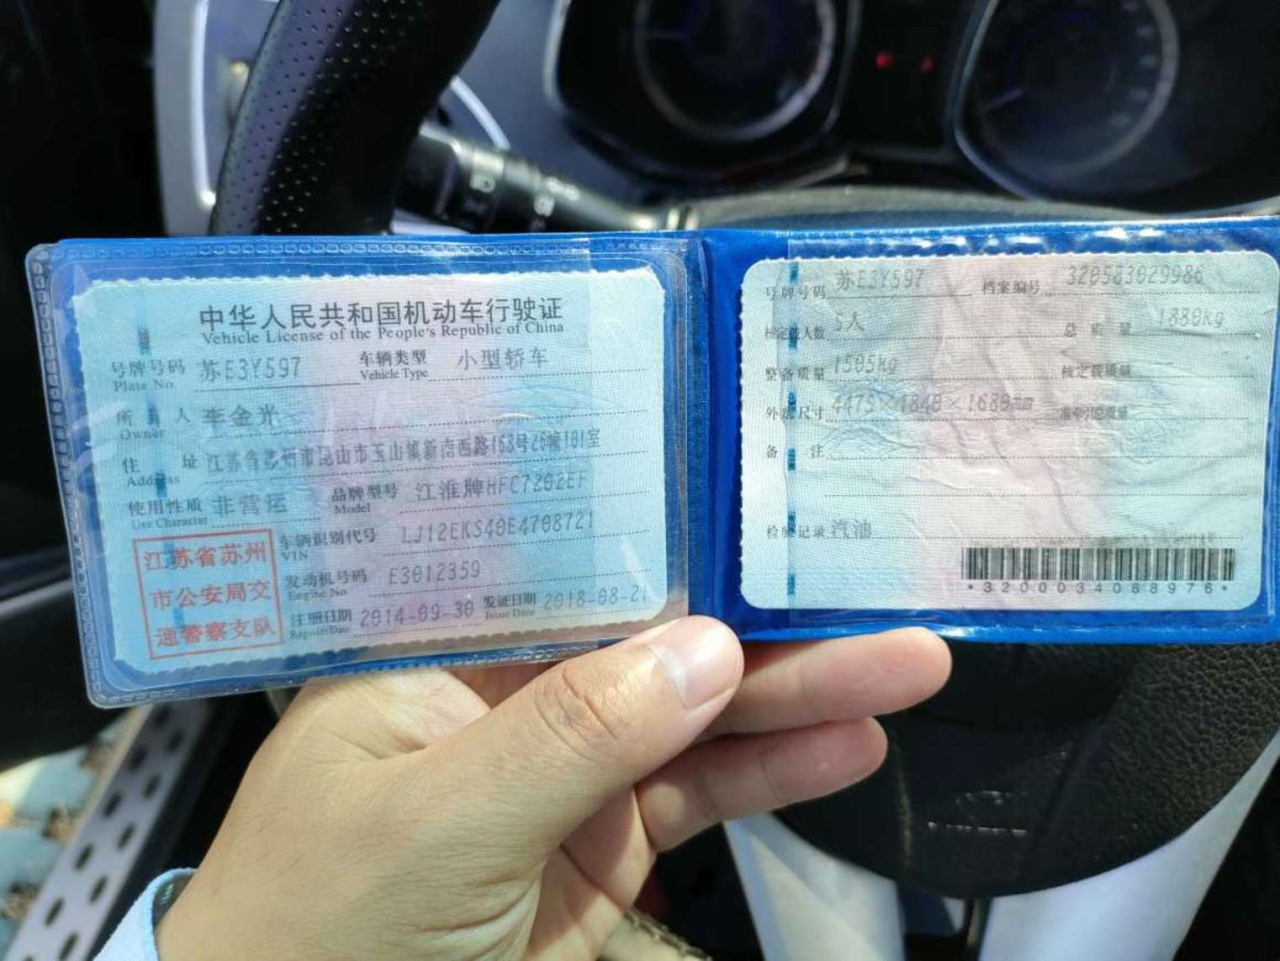 中华人民共和国机动车行驶证
Vehicle License of the People's Republic of China
号牌号码 苏E3Y597 车辆类型 小型轿车
Plate No. Vehicle Type
所有人 李金光
Owner
住址 江苏省苏州市昆山市玉山镇新南西路168号26幢101室
Address
使用性质 非营运 品牌型号 江淮牌HFC7202EF
Use Character Model
江苏省苏州
市公安局交
通警察支队
车辆识别代号 LJ12EKS40E4708721
VIN
发动机号码 E3012359
Engine No
注册日期 2014-09-30 发证日期 2018-08-21
Register Date Issue Date
号牌号码 苏E3Y597 档案编号 320583029986
核定载人数 5人 总质量 1880kg
整备质量 1505kg 核定载质量
外廓尺寸 4475×1840×1680mm 准牵引总质量
备注
检验记录 汽油
*3200034068976*